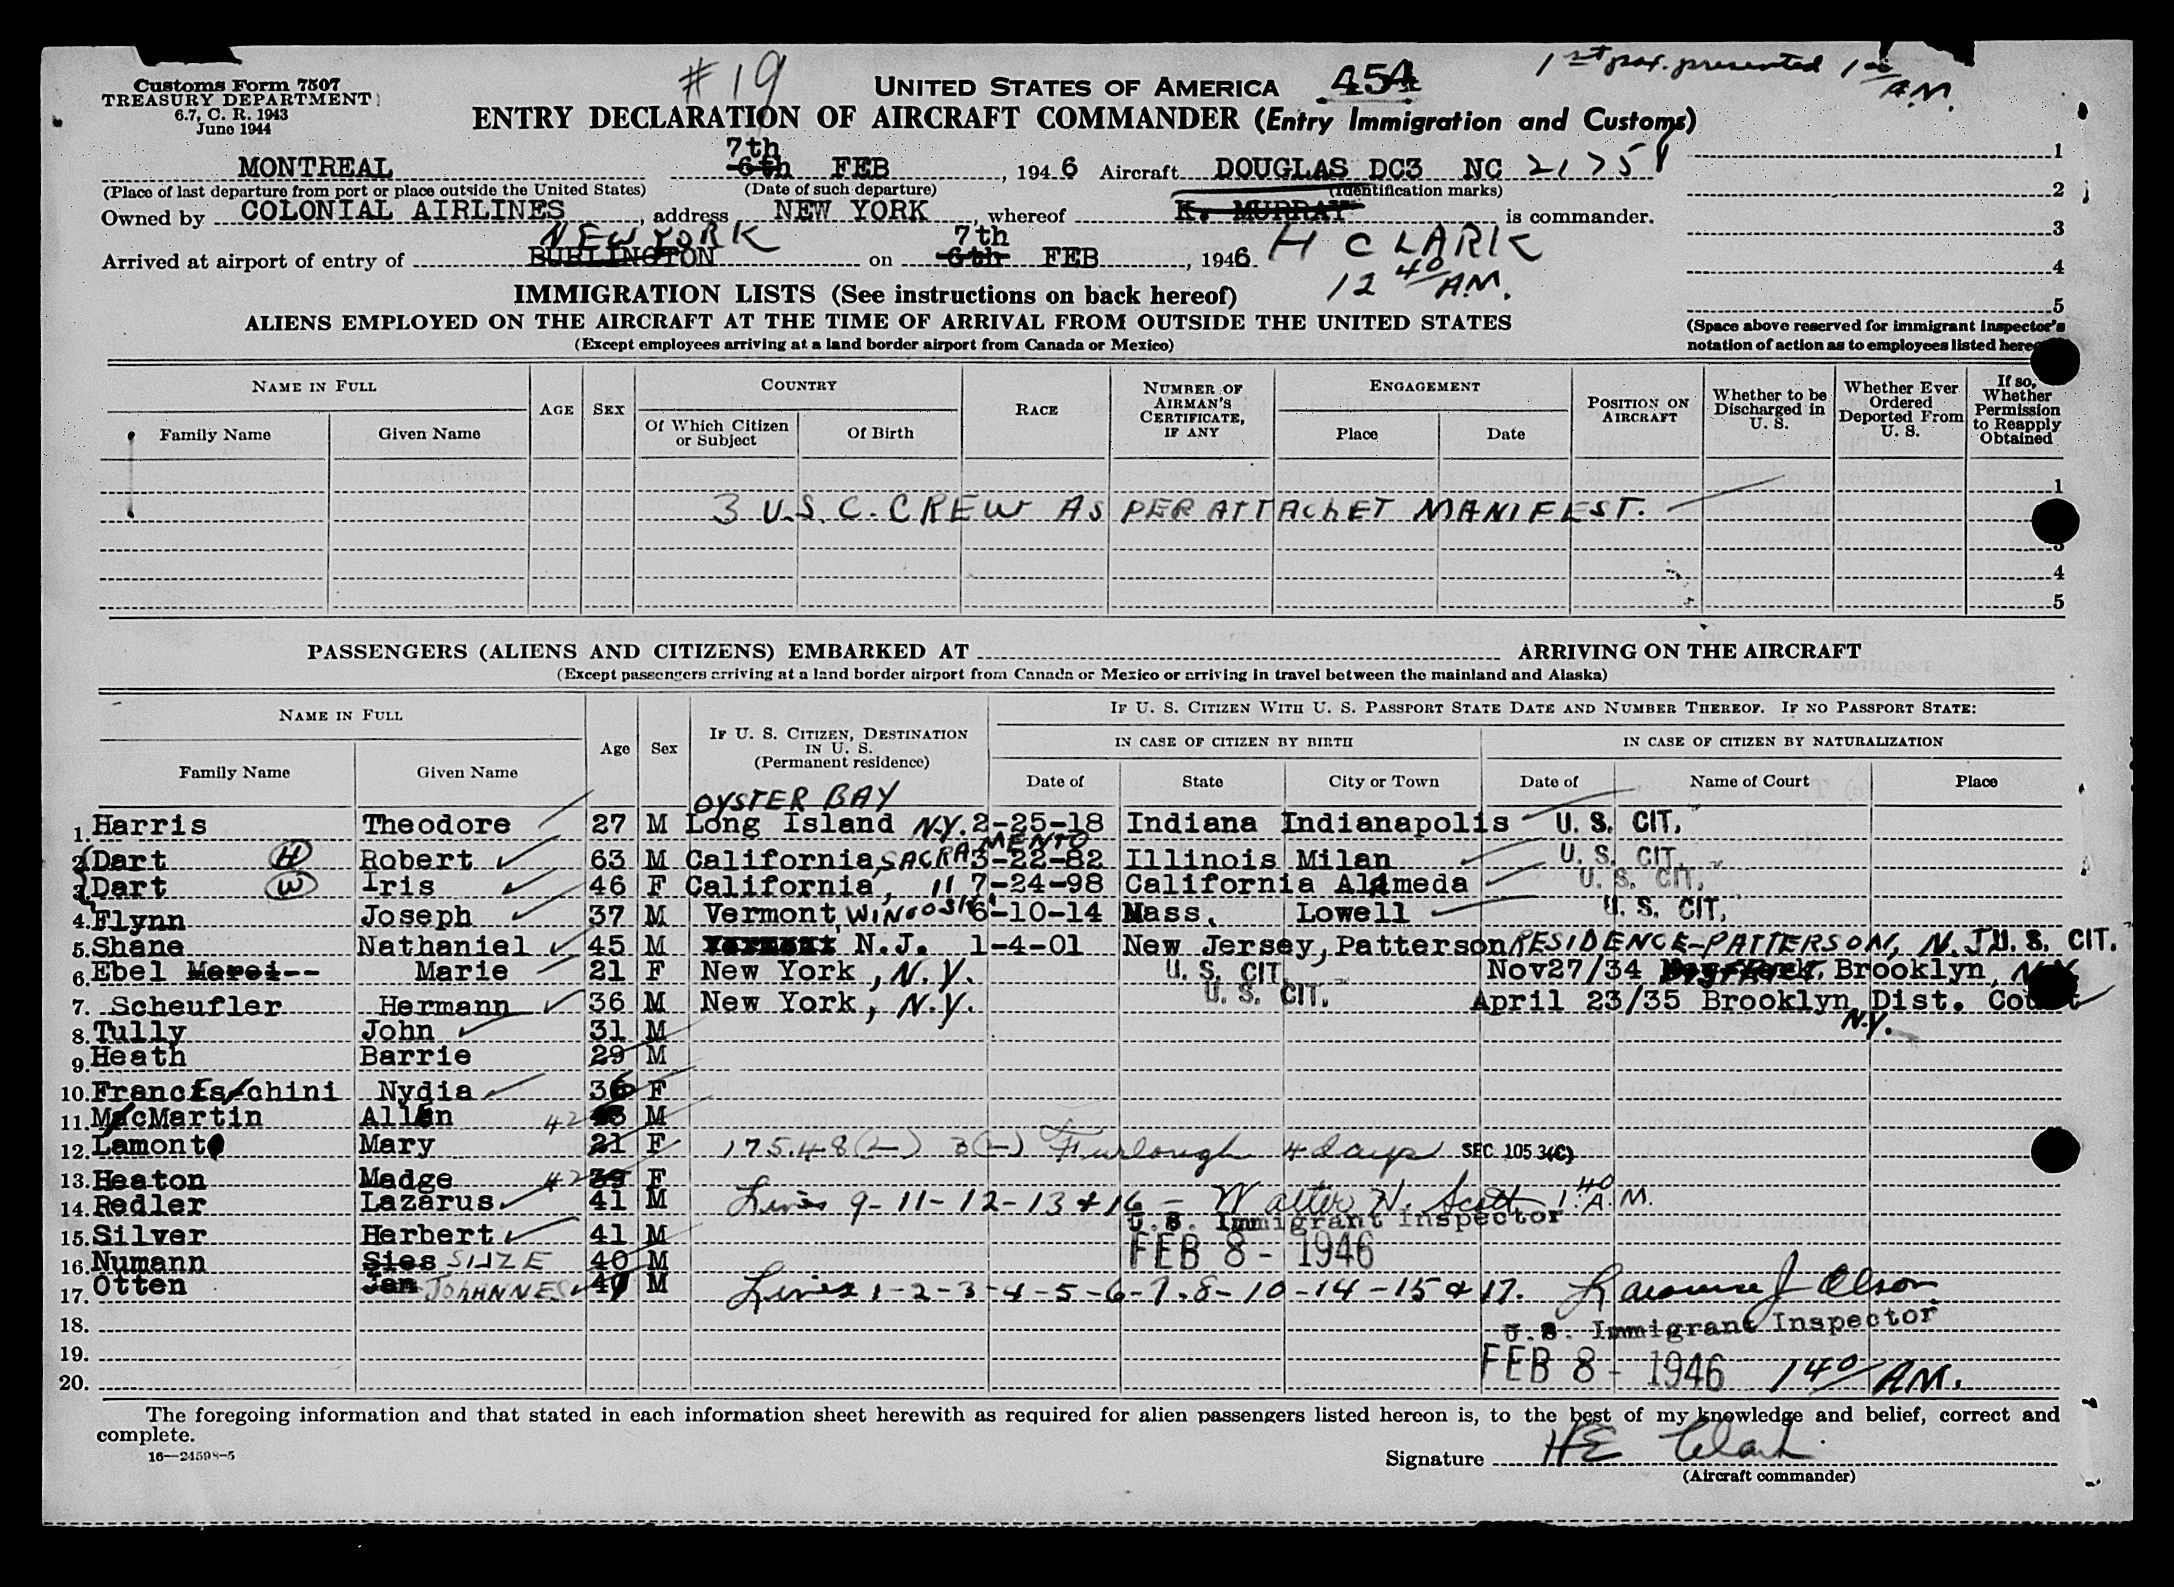 # 19
454
1st pax. presented 1 00 A.M.
Customs Form 7507
TREASURY DEPARTMENT
6.7, C. R. 1943
June 1944
UNITED STATES OF AMERICA
ENTRY DECLARATION OF AIRCRAFT COMMANDER (Entry Immigration and Customs)
7th
MONTREAL 6th FEB , 1946 Aircraft DOUGLAS DC3 NC 21758
(Place of last departure from port or place outside the United States) (Date of such departure) (Identification marks)
Owned by COLONIAL AIRLINES , address NEW YORK , whereof K. MURRAY is commander.
NEW YORK 7th H CLARK
Arrived at airport of entry of BURLINGTON on 6th FEB , 1946
12 40 A.M.
1
2
3
4
5
IMMIGRATION LISTS (See instructions on back hereof)
ALIENS EMPLOYED ON THE AIRCRAFT AT THE TIME OF ARRIVAL FROM OUTSIDE THE UNITED STATES
(Except employees arriving at a land border airport from Canada or Mexico)
(Space above reserved for immigrant inspector's
notation of action as to employees listed
NAME IN FULL
Family Name Given Name
AGE SEX
COUNTRY
Of Which Citizen or Subject Of Birth
RACE
NUMBER OF AIRMAN'S CERTIFICATE, IF ANY
ENGAGEMENT
Place Date
POSITION ON AIRCRAFT
Whether to be Discharged in U. S.
Whether Ever Ordered Deported From U. S.
If so, Whether Permission to Reapply Obtained
1
3 U.S.C. CREW AS PER ATTACHET MANIFEST.
3
4
5
PASSENGERS (ALIENS AND CITIZENS) EMBARKED AT ARRIVING ON THE AIRCRAFT
(Except passengers arriving at a land border airport from Canada or Mexico or arriving in travel between the mainland and Alaska)
NAME IN FULL
Family Name Given Name
Age Sex
IF U. S. CITIZEN, DESTINATION IN U. S. (Permanent residence)
IF U. S. CITIZEN WITH U. S. PASSPORT STATE DATE AND NUMBER THEREOF. IF NO PASSPORT STATE:
IN CASE OF CITIZEN BY BIRTH IN CASE OF CITIZEN BY NATURALIZATION
Date of State City or Town Date of Name of Court Place
OYSTER BAY
1. Harris Theodore 27 M Long Island N.Y. 2-25-18 Indiana Indianapolis U. S. CIT.
2. Dart H Robert 63 M California, SACRAMENTO 3-22-82 Illinois Milan U. S. CIT.
3. Dart W Iris 46 F California, 11 7-24-98 California Alameda U. S. CIT.
4. Flynn Joseph 37 M Vermont, WINOOSKI 6-10-14 Mass. Lowell U. S. CIT.
5. Shane Nathaniel 45 M Vermont N.J. 1-4-01 New Jersey, Patterson RESIDENCE-PATTERSON, N.J. U. S. CIT.
6. Ebel Marie 21 F New York, N.Y. U. S. CIT. Nov27/34 Brooklyn, N.Y.
7. Scheufler Hermann 36 M New York, N.Y. U. S. CIT. April 23/35 Brooklyn Dist. Court
N.Y.
8. Tully John 31 M
9. Heath Barrie 29 M
10. Franceschini Nydia 36 F
11. MacMartin Allen 42 43 M
12. Lamont Mary 21 F 17548 (-) 3(-) Furlough 4 days SEC 105.3(C)
13. Heaton Madge 42 39 F
14. Redler Lazarus 41 M Lines 9-11-12-13 & 16 - Walter N. Scott 1 40 A.M.
U. S. Immigrant Inspector
15. Silver Herbert 41 M FEB 8 - 1946
16. Numann Sies SIJZE 40 M
17. Otten Jan JOHANNES 4 M Lines 1-2-3-4-5-6-7-8-10-14-15 & 17. Lawrence J Olson
18. U. S. Immigrant Inspector
19. FEB 8 - 1946 1 40 AM.
20.
The foregoing information and that stated in each information sheet herewith as required for alien passengers listed hereon is, to the best of my knowledge and belief, correct and
complete.
16—24598-5
Signature HE Clark
(Aircraft commander)